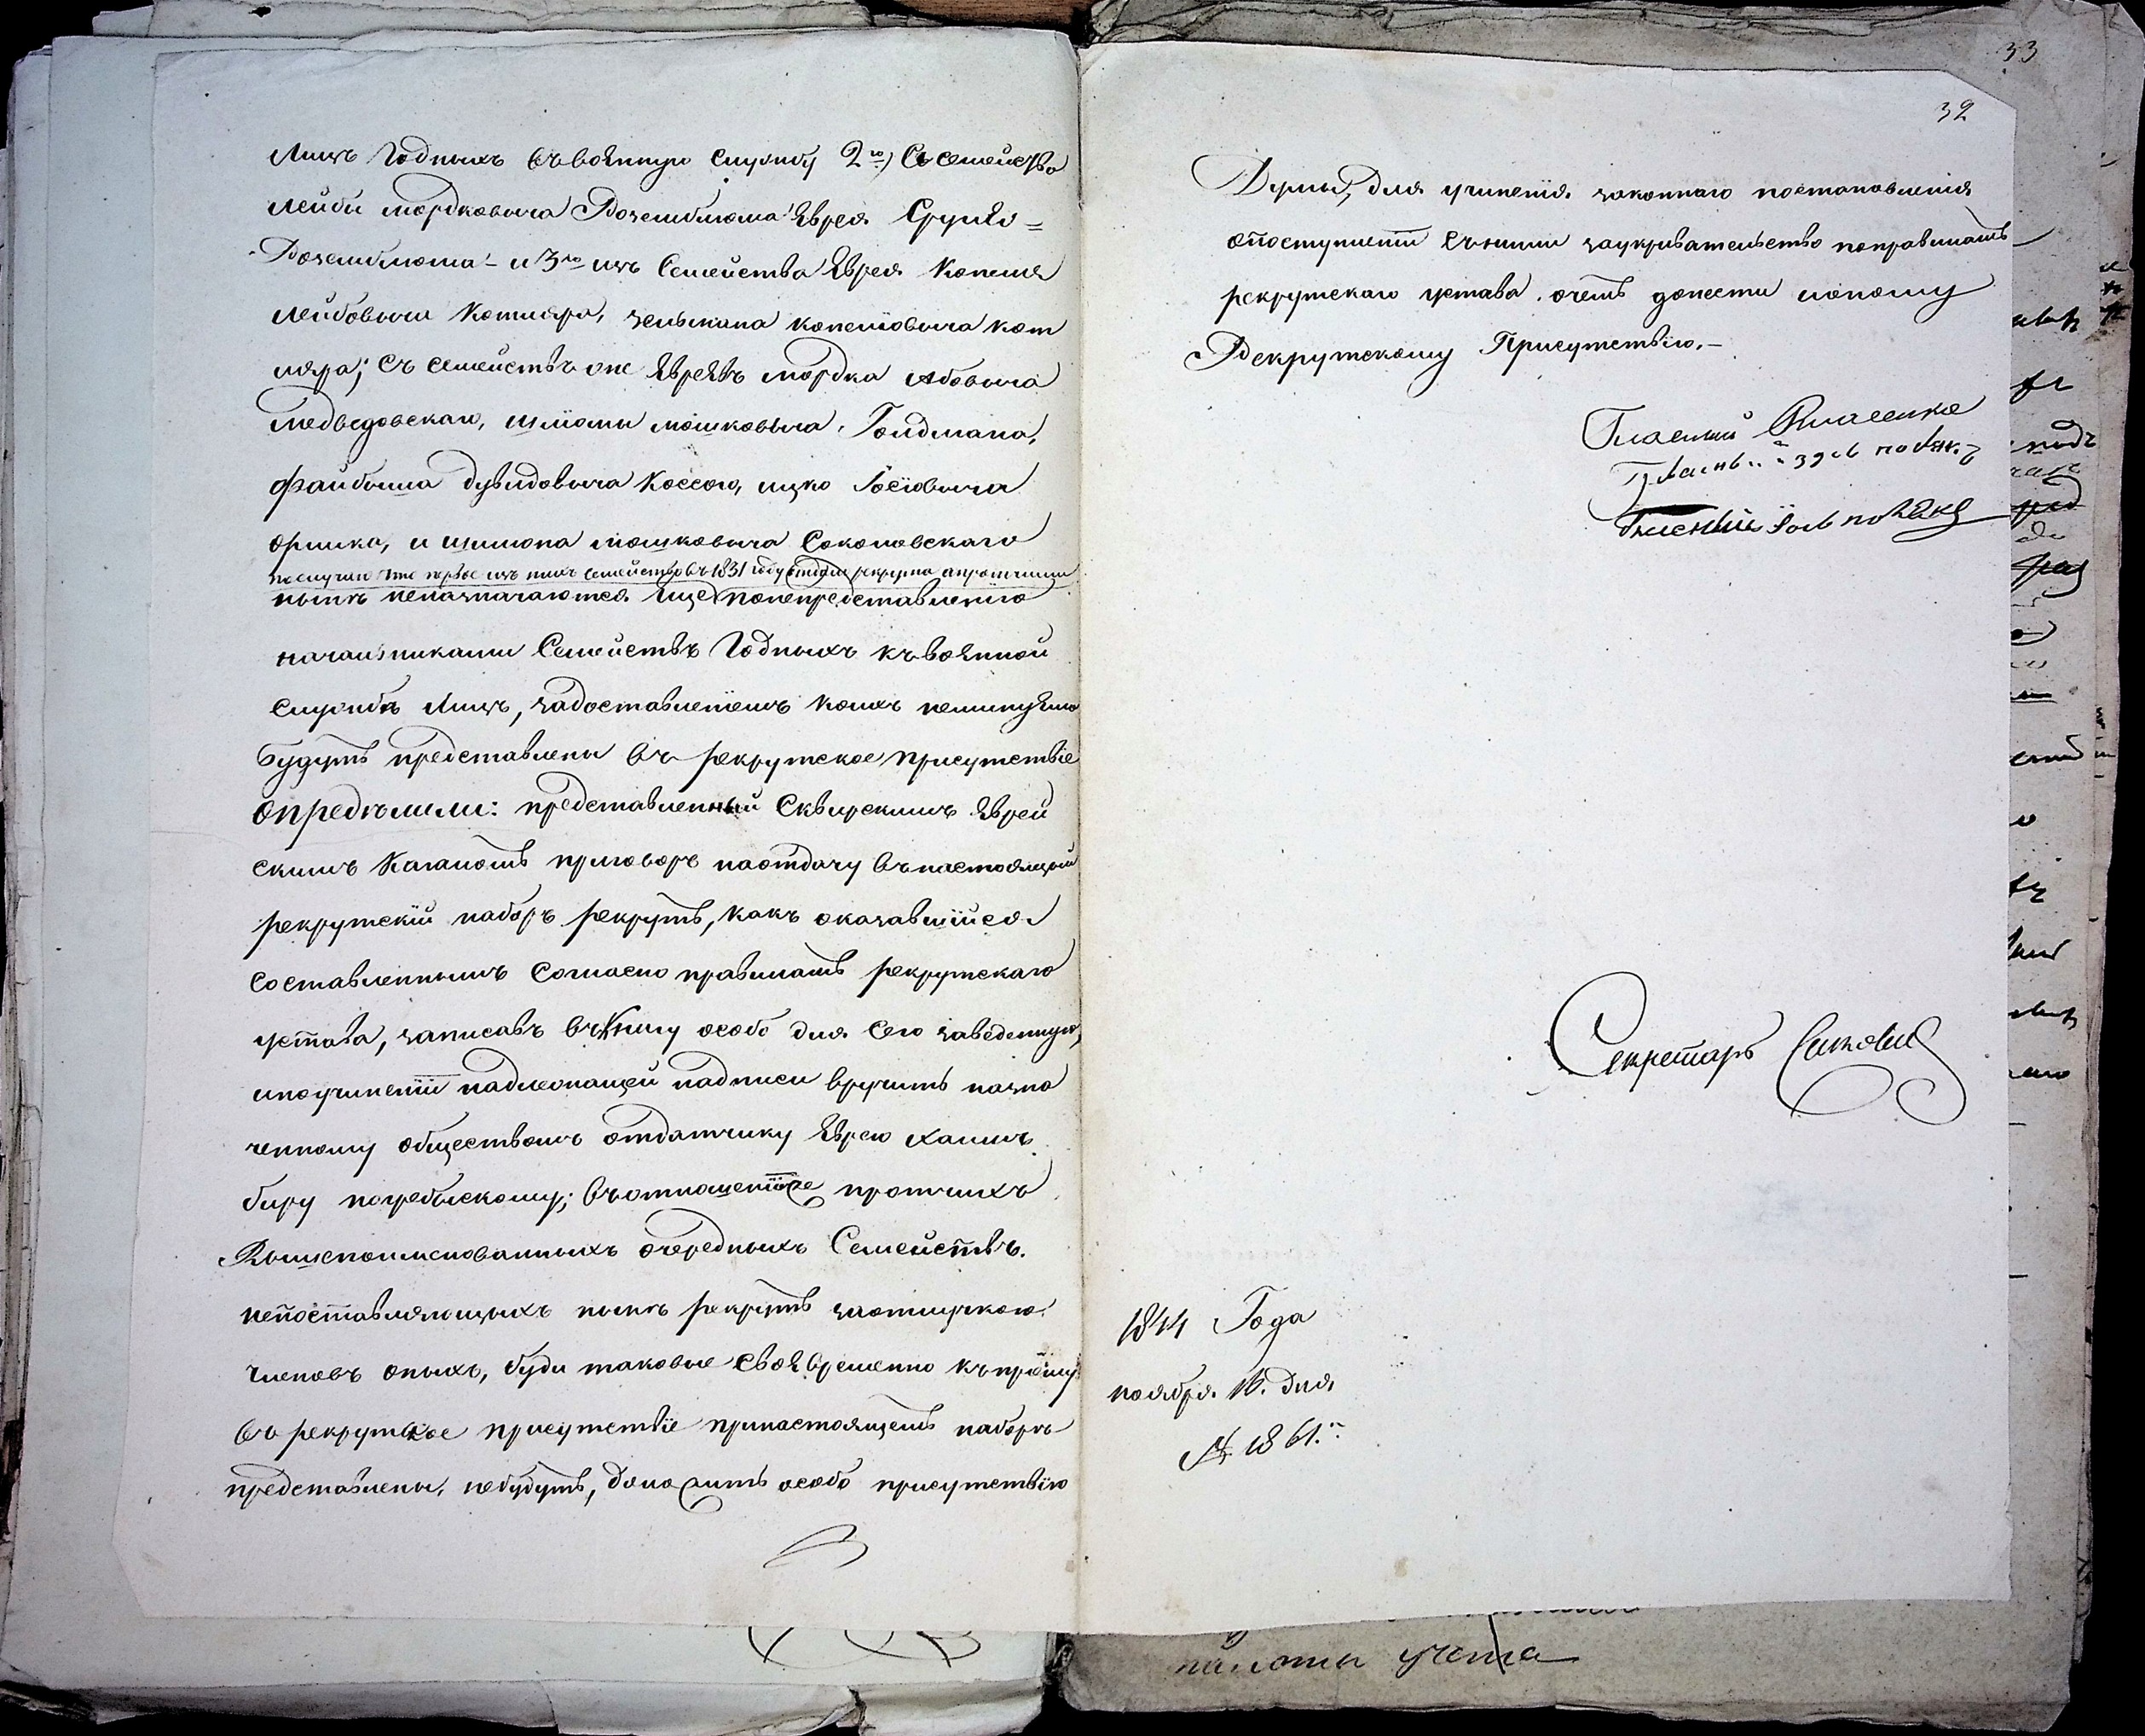 лицъ годныхъ въ воэнную службу 2го) Съ семейства
лейби мордковича Розенблюма Эврея Сруля
Розенблюма и 3го изъ Семейства Эврея Копеля
лейбовича Котляра, зельмана копелiовича кот
ляра; съ семействъ же Эвреэвъ мордка Абовича
медведовскаго, шліомы мошковича Гольдмана,
файбиша дувидовича Коссого, ицко Іосіовича
и шимона мошковича Соколовскаго
по случаю что первое изъ нихъ семейство въ 1831 году отдали рекрута а протчими
нынѣ неназначаются Эще по непредставленію
начальниками Семействъ Годныхъ къ воэнной
службѣ лицъ, за доставленіемъ коихъ неминуэмо
будутъ представлены въ рекрутское присутствіе
опредѣлили: представленный Сквирскимъ Эврей
скимъ Кагаломъ приговоръ на отдачу въ настоящій
рекрутскій наборъ рекрутъ, какъ оказавшійся
составленнымъ Согласно правиламъ рекрутскаго
устава, записавъ въ Книгу особо для Сего заведенную,
и по учиненіи надлежащей надписи вручить назна
ченному обществомъ отдатчику Эврею Хаимъ
биру погребискому; въ отношеніи же протчихъ
Вышепоименованныхъ очередныхъ Семействъ
непоставляющихъ нынѣ рекрутъ за отлучкою
членовъ оныхъ, буди таковые своэвременно къ пріэму
въ рекрутское присутствіе при настоящемъ наборѣ
представлены небудутъ, доложить особо присутствію
33
32
Думы, для учиненія законнаго постановленія
о поступленіи съ ними за укривательство по правиламъ
рекрутскаго устава. о чемъ донести и оному
Рекрутскому Присутствію.
Гласный Власенко
Гласный
Секретарь
1844 Года
ноября 16. дня
№ 1861.
палоты учета